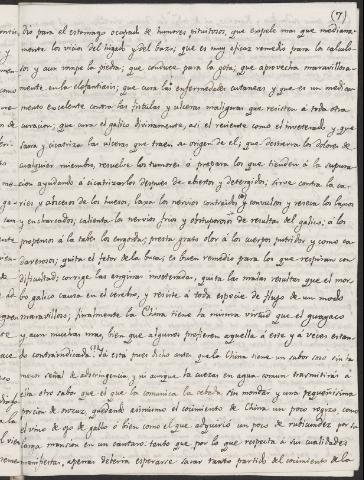 (7)
dio para el estomago ocupado de humores pituitosos, que expele mas que mediana-
mente los vicios del higado y del bazo; que es muy eficaz remedio para los calculo-
sos y aun rompe la piedra; que conduce para la gota; que aprovecha maravillosa-
mente en la elefantiasis; que cura las enfermedades cutaneas y que es un medica-
mento excelente contra las fistulas y ulceras malignas que resisten á toda otra
curacion; que cura el galico divinamente, asi el reciente como el inveterado, y que
sana y cicatriza las ulceras que traen su origen de el; que destierra los dolores de
cualquier miembro, resuelve los tumores ó prepara los que tienden á la supura-
cion ayudando á cicatrizarlos despues de abiertos y detergidos; sirve contra la ca-
ries y absceso de los huesos, laxa los nervios contraidos ó convulsos y reseca los laxos
y encharcados; calienta los nervios frios y de resultas del galico; á los
propensos á la tabes los engorda; presta grato olor á los cuerpos putridos y como ca-
daverosos; quita el fetor de la boca; es buen remedio para los que respiran con
dificultad; corrige las anginas inveteradas, quita las malas resultas que el mor-
bo galico causa en el cerebro, y resiste á toda especie de flujo de un modo
maravilloso; finalmente la China tiene la misma virtud que el guayaco
y aun muchas mas, bien que algunos prefieren aquella á este y á veces estan-
do contraindicada. Ya esta pues dicho antes que la China tiene un sabor soso sin la
menor señal de adstringencia, y ni aunque la cuezas en agua comun transmitirá á
esta otro sabor que el que la comunica la cebada sin mondar y una pequeñisima
porcion de arroz, quedando asimismo el cocimiento de China un poco rogizo como
el vino de ojo de gallo ó bien como el que adquirió un poco de rubicundez por la
larga mansion en un cantaro: tanto que por lo que respecta á sus cualidades
manifiestas, apenas deberia esperarse sacar tanto partido del cocimiento de la